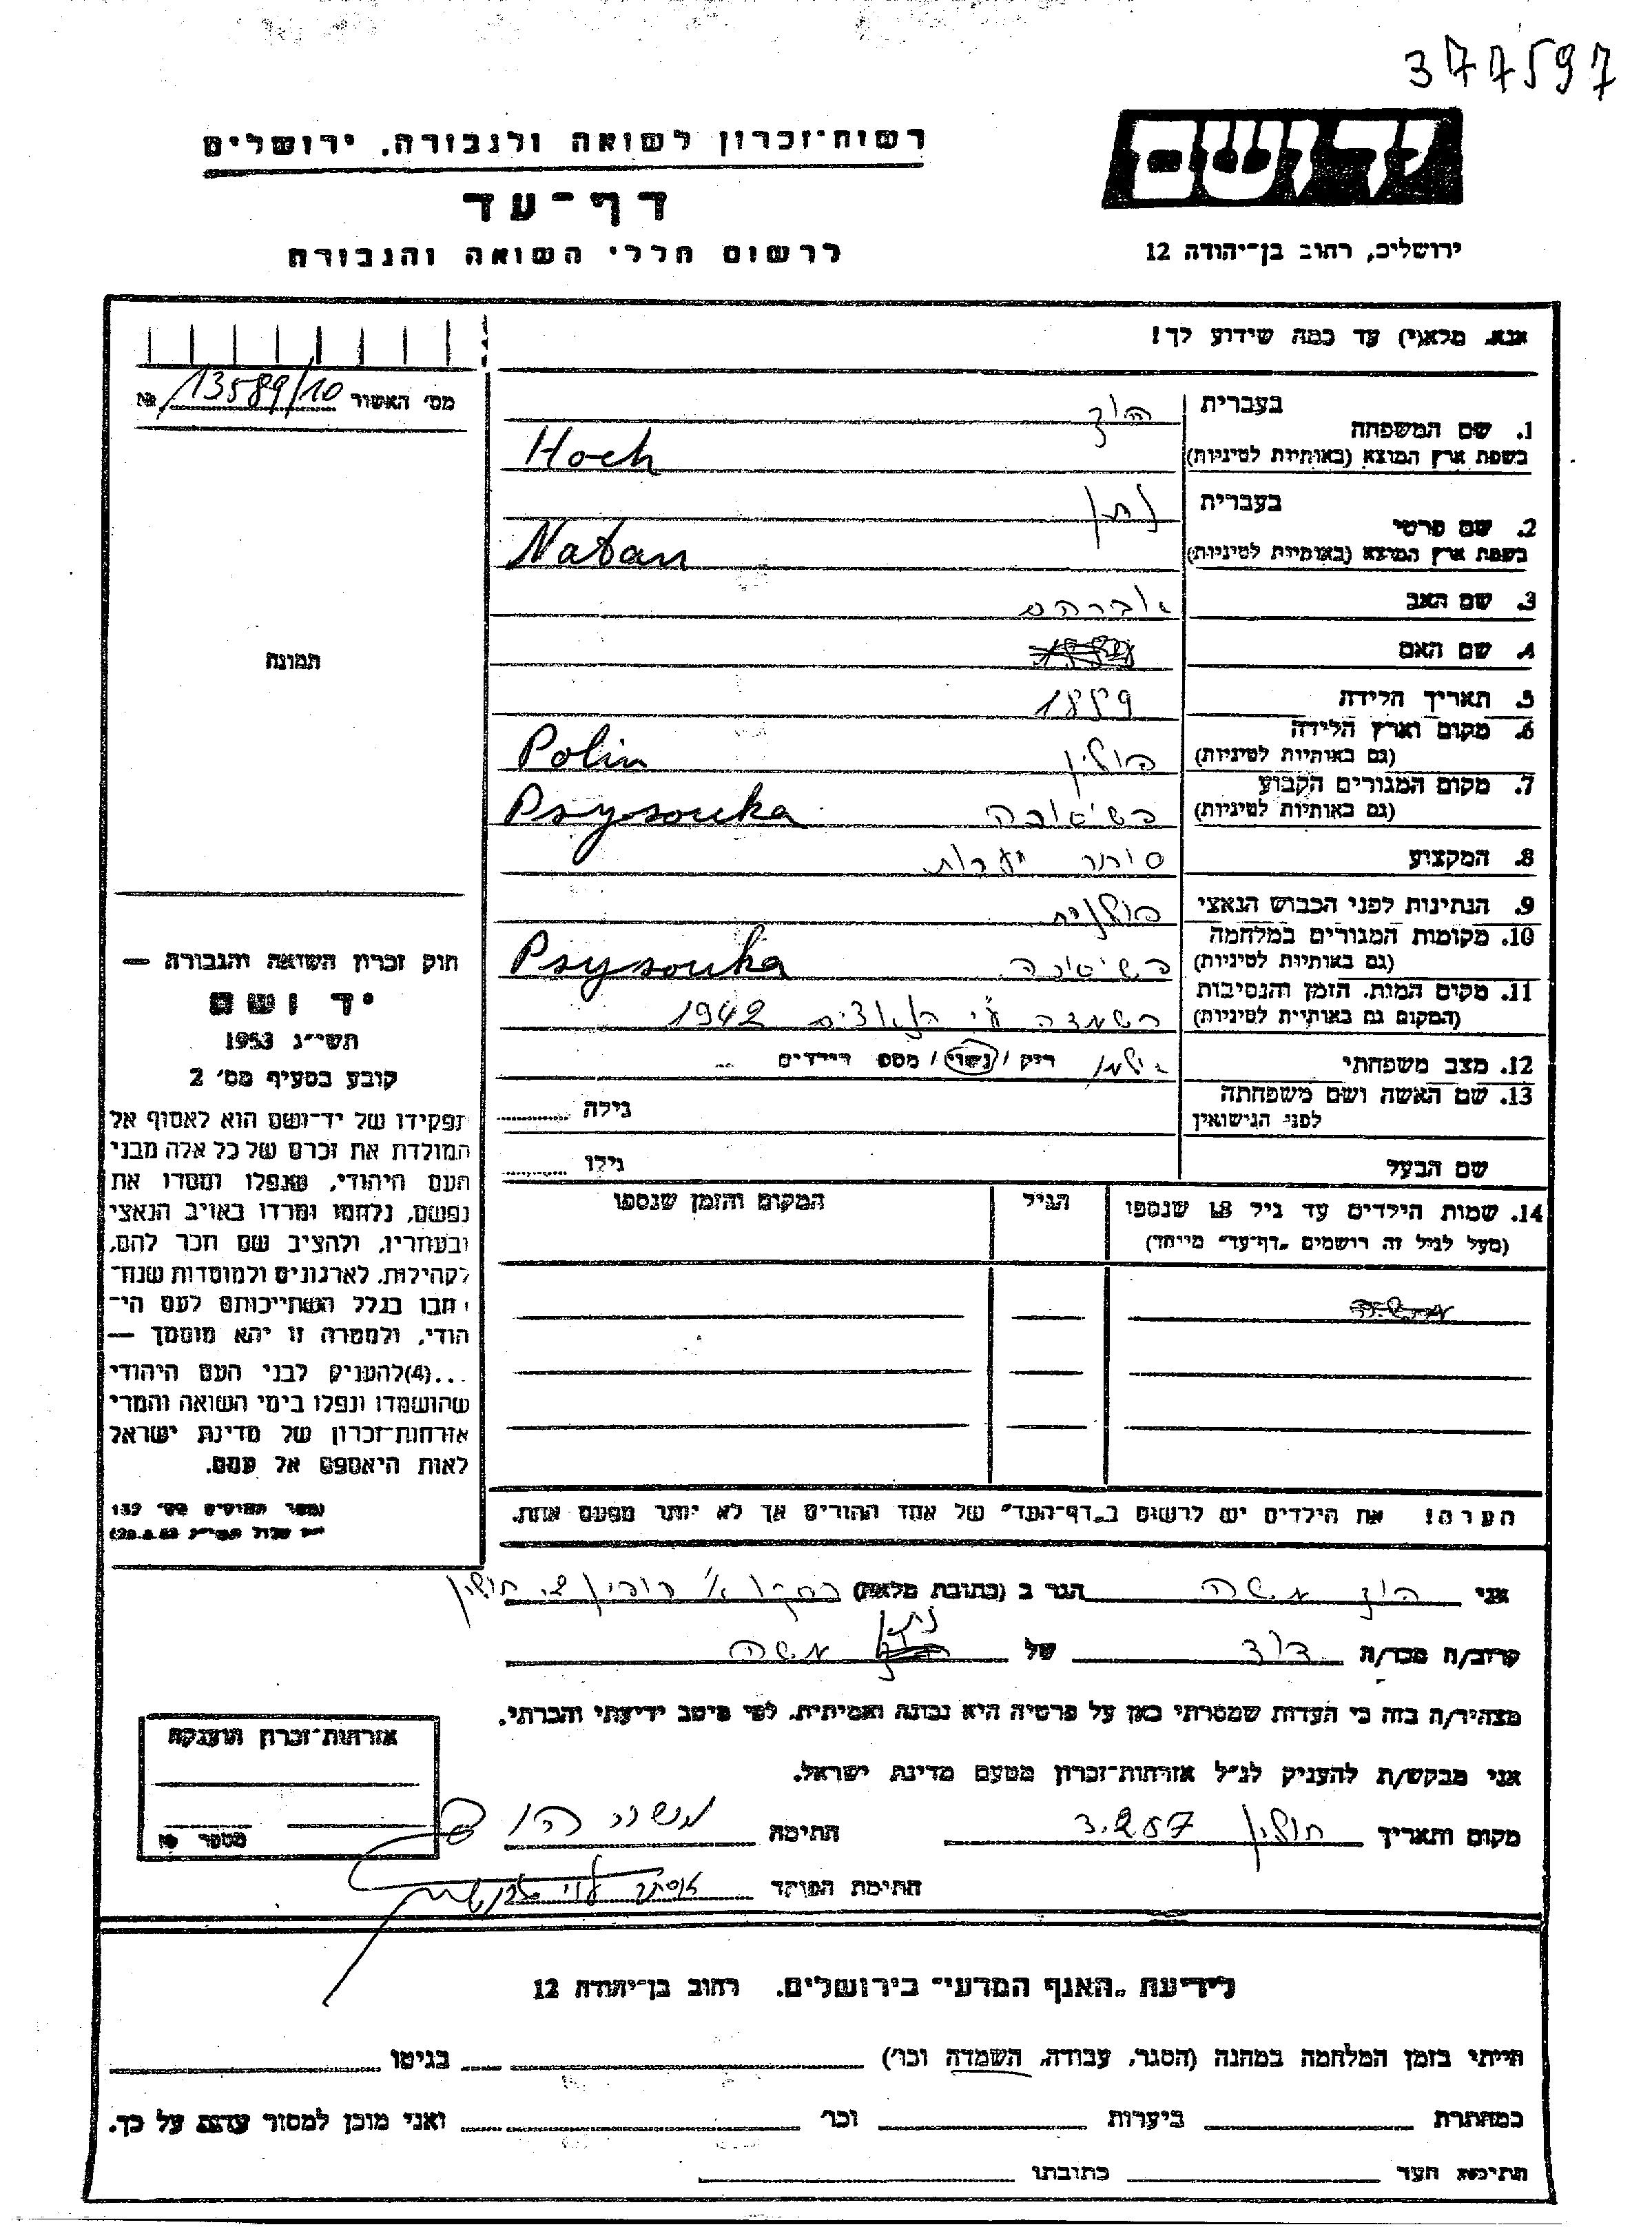 377597
יד ושם
רשות־זכרון לשואה ולגבורה, ירושלים
דף־עד
לרשום חללי השואה והגבורה
ירושלים, רחוב בן־יהודה 12
אנא, מלא(י) עד כמה שידוע לך!
מס׳ האשור 13589/10 №
בעברית הוך
1. שם המשפחה
בשפת ארץ המוצא (באותיות לטיניות) Hoch
בעברית נתן
2. שם פרטי
בשפת ארץ המוצא (באותיות לטיניות) Natan
3. שם האב אברהם
4. שם האם
תמונה
5. תאריך הלידה 1889
6. מקום וארץ הלידה
(גם באותיות לטיניות) פולין Polin
7. מקום המגורים הקבוע
(גם באותיות לטיניות) Psysouka
8. המקצוע סוחר יערות
9. הנתינות לפני הכבוש הנאצי פולנית
10. מקומות המגורים במלחמה
(גם באותיות לטיניות) Psysouka
11. מקום המות, הזמן והנסיבות
(המקום גם באותיות לטיניות) השמדה ע״י הנאצים 1942
12. מצב משפחתי רוק / נשוי / מספר הילדים
13. שם האשה ושם משפחתה גילה
לפני הנישואין
שם הבעל גילו
14. שמות הילדים עד גיל 18 שנספו הגיל המקום והזמן שנספו
(מעל לגיל זה רושמים „דף־עד״ מיוחד)
חוק זכרון השואה והגבורה —
יד ושם
תשי״ג 1953
קובע בסעיף מס׳ 2
תפקידו של יד־ושם הוא לאסוף אל
המולדת את זכרם של כל אלה מבני
העם היהודי, שנפלו ומסרו את
נפשם, נלחמו ומרדו באויב הנאצי
ובעוזריו, ולהציב שם וזכר להם,
לקהילות, לארגונים ולמוסדות שנח־
רבו בגלל השתייכותם לעם הי־
הודי, ולמטרה זו יהא מוסמך —
...(4) להעניק לבני העם היהודי
שהושמדו ונפלו בימי השואה והמרי
אזרחות־זכרון של מדינת ישראל
לאות היאספם אל עמם.
הערה! את הילדים יש לרשום ב„דף־העד״ של אחד ההורים אך לא יותר מפעם אחת.
אני הוך משה הגר ב (כתובת מלאה) חולון
קרוב/ה מכר/ה דוד של נתן משה
מצהיר/ה בזה כי העדות שמסרתי כאן על פרטיה היא נכונה ואמיתית, לפי מיטב ידיעתי והכרתי.
אני מבקש/ת להעניק לנ״ל אזרחות־זכרון מטעם מדינת ישראל.
מקום ותאריך חולון 3.2.57 חתימה משה הוך
חתימת הפוקד
אזרחות־זכרון הוענקה
מספר №
לידיעת „האגף המדעי״ בירושלים, רחוב בן־יהודה 12
הייתי בזמן המלחמה במחנה (הסגר, עבודה, השמדה וכו׳) בגיטו
במחתרת ביערות וכו׳ ואני מוכן למסור עדות על כך.
חתימת העד כתובתו